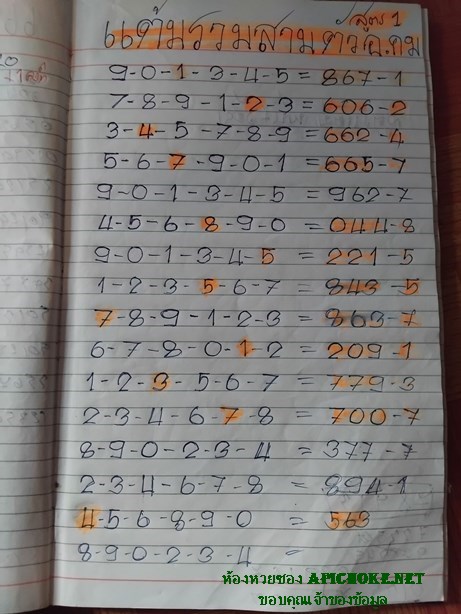 สูตร 1
แต้มรวมสามตัว อ.คม
9-0-1-3-4-5 = 867-1
7-8-9-1-2-3 = 606-2
3-4-5-7-8-9 = 662-4
5-6-7-9-0-1 = 665-7
9-0-1-3-4-5 = 962-7
4-5-6-8-9-0 = 044-8
9-0-1-3-4-5 = 221-5
1-2-3-5-6-7 = 843-5
7-8-9-1-2-3 = 863-7
6-7-8-0-1-2 = 209-1
1-2-3-5-6-7 = 779-3
2-3-4-6-7-8 = 700-7
8-9-0-2-3-4 = 377-7
2-3-4-6-7-8 = 894-1
4-5-6-8-9-0 = 563
8-9-0-2-3-4 =
ห้องหวยของ APICHOKE.NET
ขอบคุณเจ้าของข้อมูล